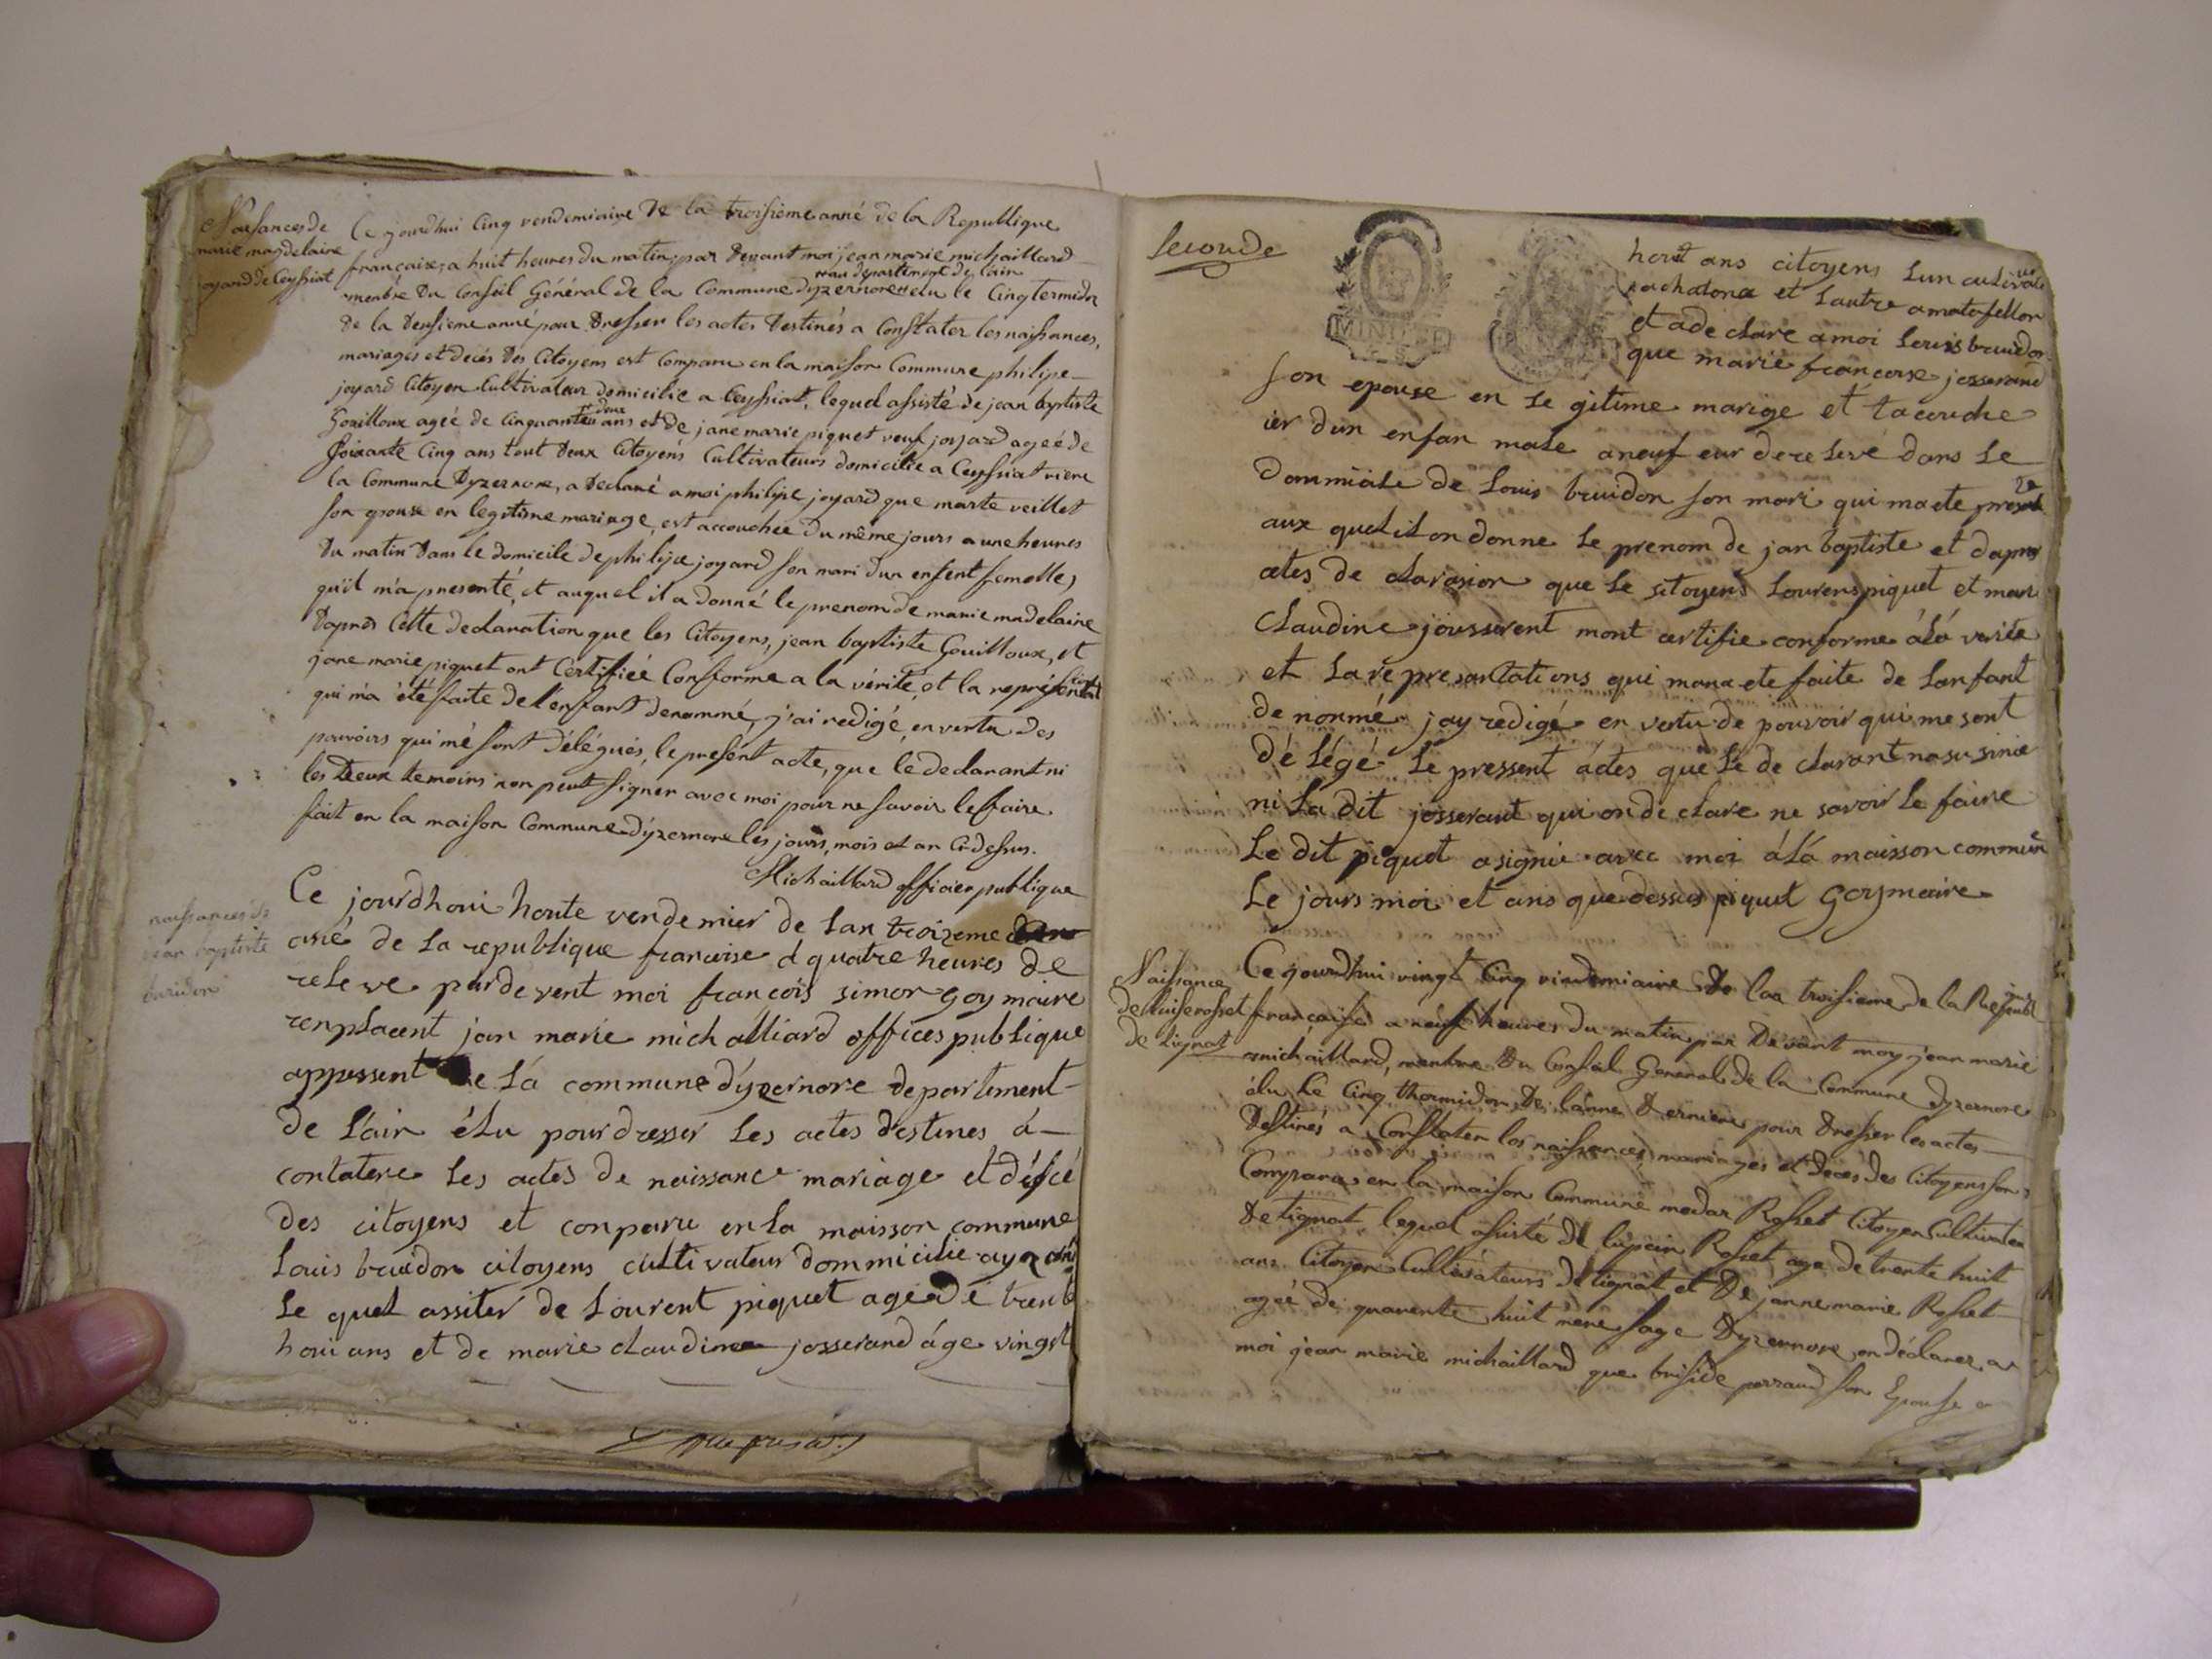 Naissances de
marie magdelaine
joyard de Ceyssiat
Ce jourdhui Cinq vendemiaire de la troisieme anné de la Republique
française, a huit heures du matin, par devant moi jean marie michaillard
menbre du Conseil Général de la Commune dyzernore elu le Cinq termidor
au departement de lain
de la deusieme anné pour dresser les actes destinés a Constater les naissances,
mariages et decès des Citoyens est Comparu en la maison Commune philipe
joyard Citoyen Cultivateur domicilie a Ceyssiat, lequel assisté de jean baptiste
Gouilloux ageé de Cinquante deux ans et de jane marie piquet veuf joyard ageé de
soixante Cinq ans tout deux Citoyens Cultivateurs domicilie a Ceyssiat riere
la Commune Dyzernore, a declaré a moi philipe joyard que marte veillet
son epouse en legitime mariage, est accouchée du même jours a une heures
du matin dans le domicile de philipe joyard son mari dun enfent femelle,
quil m'a presenté, et auquel il a donné le prenom de marie madelaine
Daprès Cette declaration que les Citoyens, jean baptiste Gouilloux, et
jane marie piquet ont Certifiée Conforme a la vérité, et la représentation
qui m'a été faite de l'enfant denommé, j'ai redigé, en vertu des
pouvoirs qui mé sont délégués, le présént acte, que le declarant ni
les deux temoins non peut signer avec moi pour ne savoir le faire.
fait en la maison Commune dyzernore les jours, mois et an Ci dessus.
Michaillard officier publique
naissances de
jean baptiste
buridon
Ce jourdhoui houte vendemier de lan troizeme
ané de la republique francoise a quatre heures de
releve pardevent moi francois simon goy maire
renplacent jan marie michalliard offices publique
appessent de la commune d'yzernore departiment
de l'ain élu pour dresser les actes destines a
contatere les actes de naissance mariage et désce
des citoyens et conparu en la maisson commune
louis bruidon citoyens cultivateur dommicilie
le quel assiter de lourent piquet age de trente
houi ans et de marie claudine josserand áge vingt
seconde
hout ans citoyens lun cultivateur
et lautre
et a de clare a moi louis bruidon
que marie francoise josserand
son epouse en le gitime marige et tacouche
ier dun enfan male a neuf eur de releve dans le
dommicile de louis bruidon son mari qui ma ete presente
aux quel il on donne le prenom de jan baptiste et dapres
cetes de clarasion que le sitoyens lourens piquet et mari
claudine jousserent mont certifie conforme álá verite
et la represantations qui mana ete faite de lanfant
de nonmé jay redigé en vertu de pouvoir qui me sont
dé légé le pressent actes que le de clarant na su sinie
ni la dit josserant qui on de clare ne savoir le faire
le dit piquet a signie avec moi álá maisson commune
le jours moi et ans que dessus piquet Goy maire
Naissance
de luise rosset
de tignat
Ce jourdhui vingt Cinq vindemiaire de lan troisieme de la Republ
française a neuf heures du matin par devant moy jean marie
michaillard, menbre du Conseil General de la Commune dyzernore
élu le Cinq thermidor de lanne derniere pour dresser les actes
destinés a Constater les naissances, mariages et decès des Citoyens son
Comparu en la maison Commune medar Rosset Citoyen Cultivateur
de tignat lequel assisté de lupein Rosset age de trente huit
ans Citoyen Cultivateurs de tignat et de janne marie Rosset
ageé de quarente huit rere sage dyzernore, on déclarer a
moi jean marie michaillard que briside perraud son Epouse en